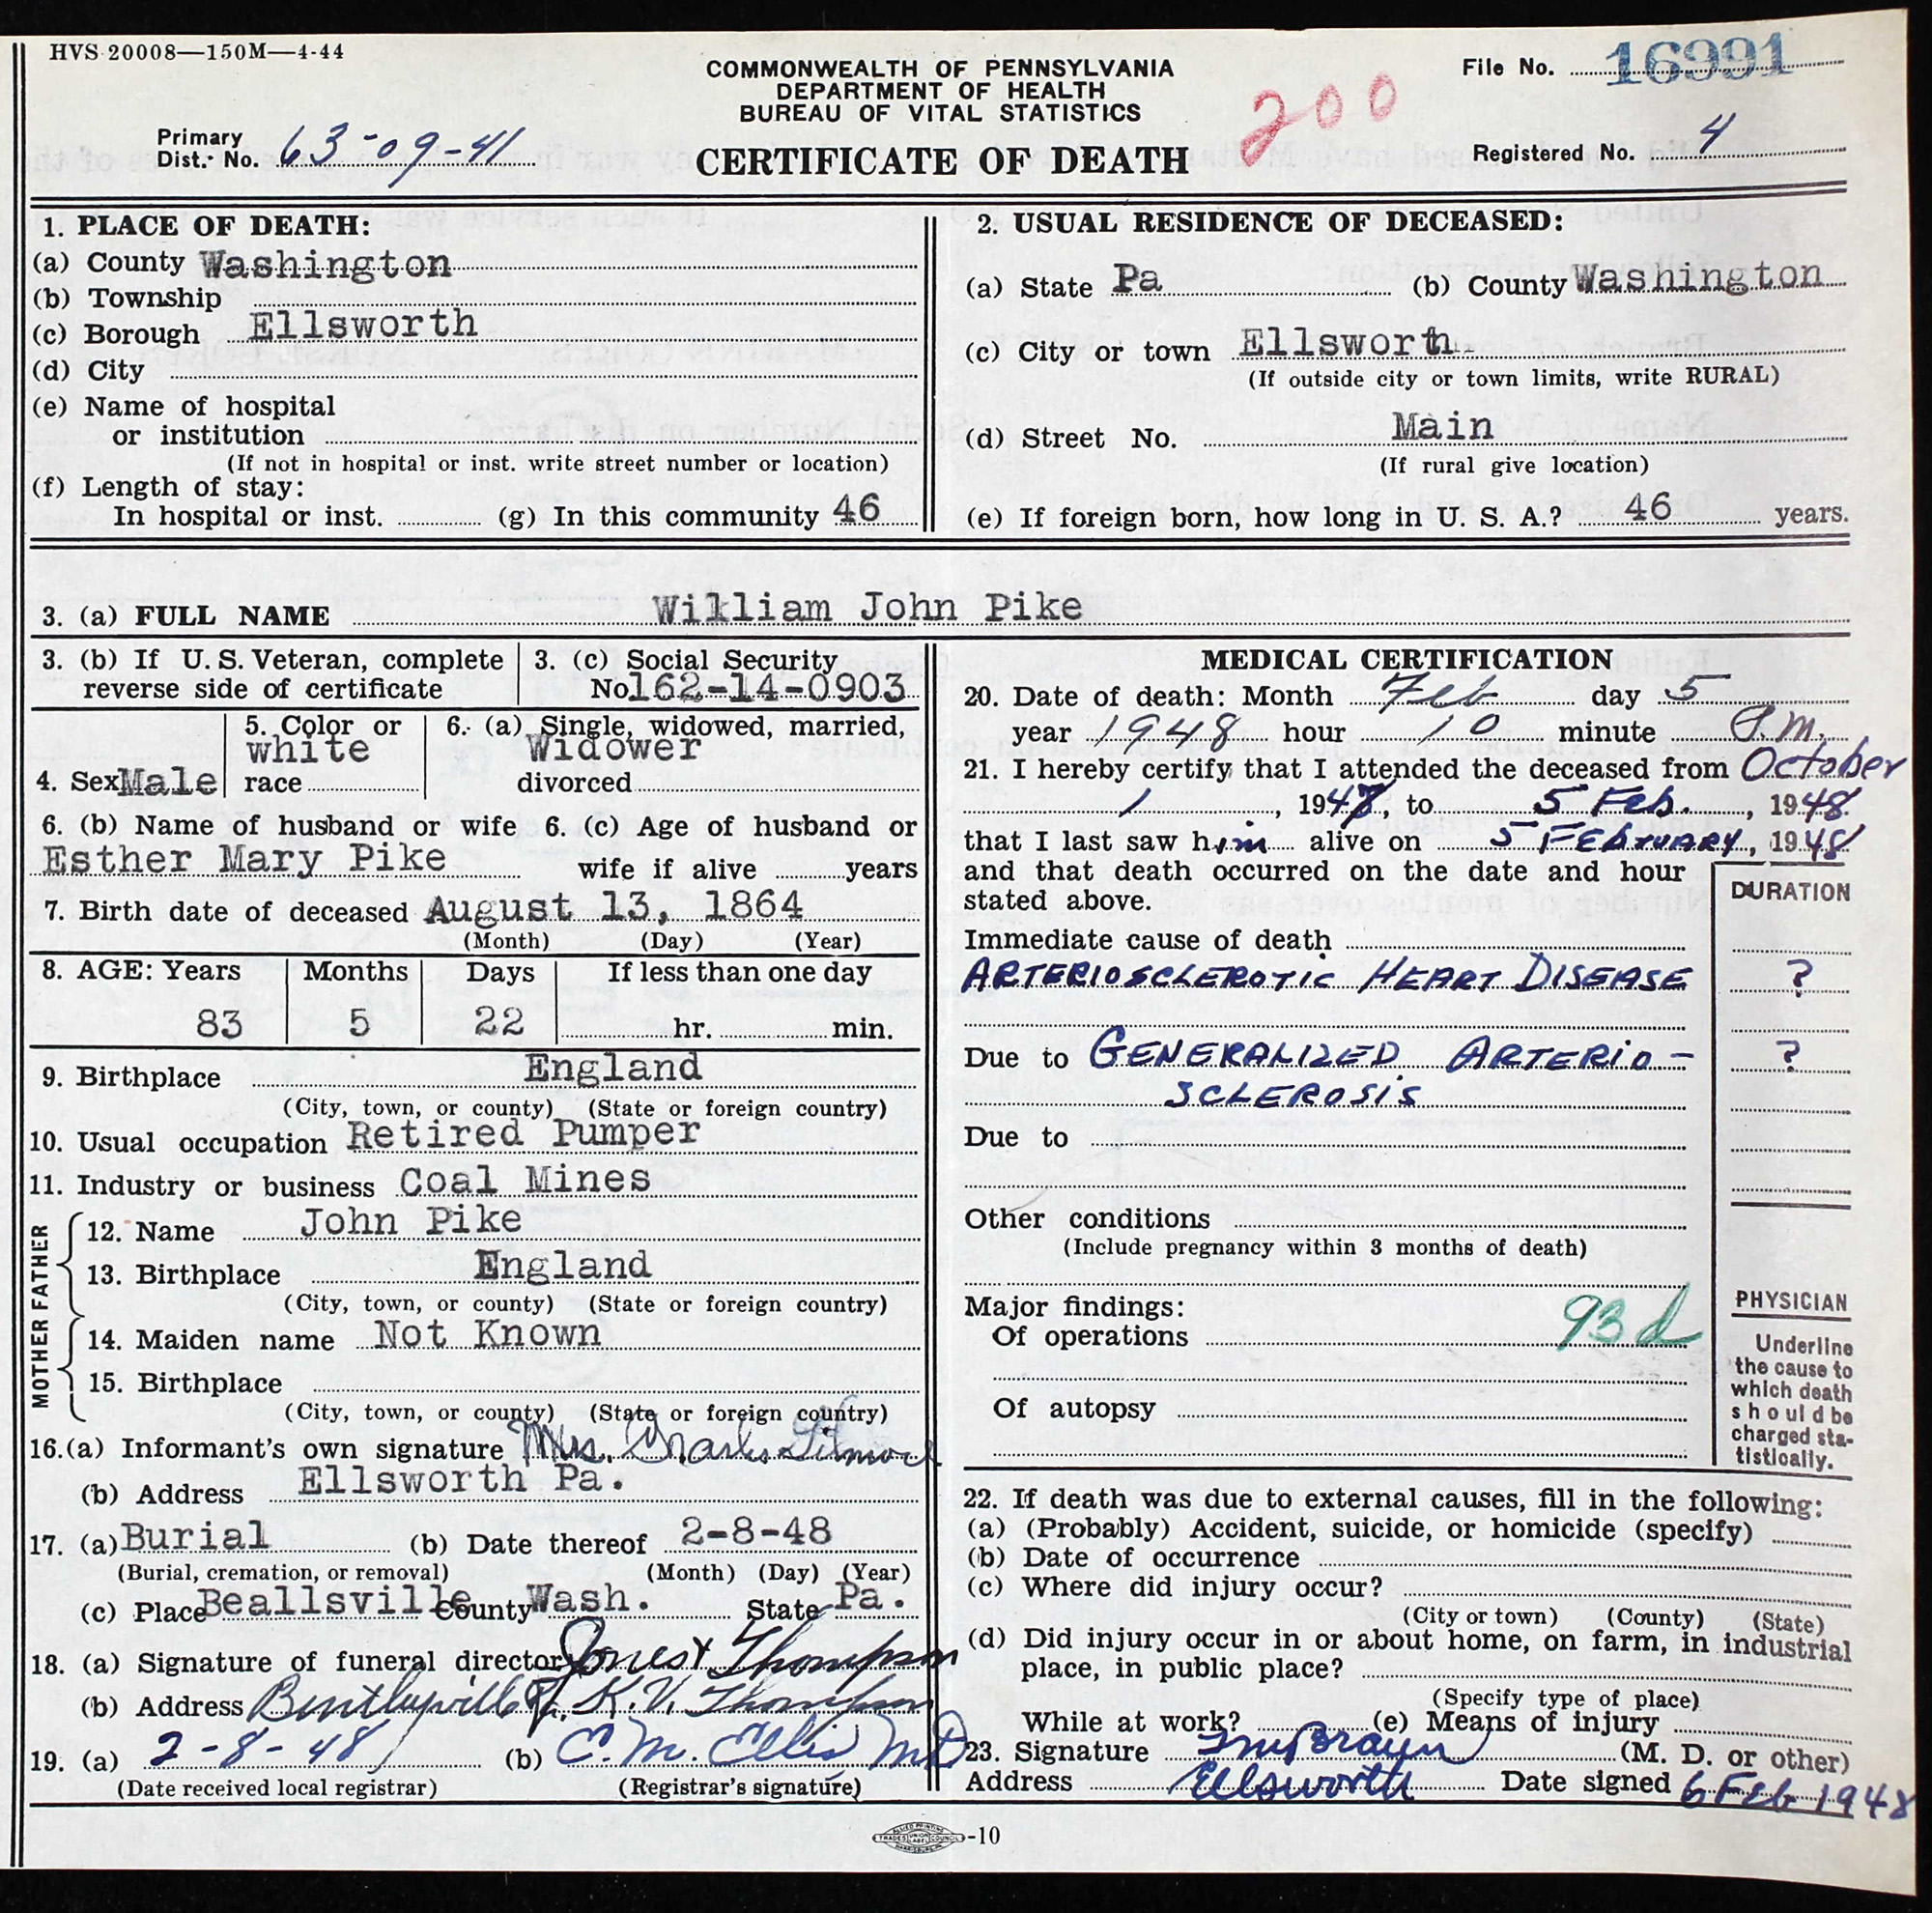 HVS 20008—150M—4-44
COMMONWEALTH OF PENNSYLVANIA
DEPARTMENT OF HEALTH
BUREAU OF VITAL STATISTICS
CERTIFICATE OF DEATH
200
File No. 16991
Primary
Dist. No. 63-09-41
Registered No. 4
1. PLACE OF DEATH:
(a) County Washington
(b) Township
(c) Borough Ellsworth
(d) City
(e) Name of hospital
or institution
(If not in hospital or inst. write street number or location)
(f) Length of stay:
In hospital or inst. (g) In this community 46
2. USUAL RESIDENCE OF DECEASED:
(a) State Pa (b) County Washington
(c) City or town Ellsworth
(If outside city or town limits, write RURAL)
(d) Street No. Main
(If rural give location)
(e) If foreign born, how long in U. S. A.? 46 years.
3. (a) FULL NAME William John Pike
3. (b) If U. S. Veteran, complete
reverse side of certificate
3. (c) Social Security
No 162-14-0903
4. Sex Male
5. Color or
white
race
6. (a) Single, widowed, married,
Widower
divorced
6. (b) Name of husband or wife
Esther Mary Pike
6. (c) Age of husband or
wife if alive years
7. Birth date of deceased August 13, 1864
(Month) (Day) (Year)
8. AGE: Years Months Days If less than one day
83 5 22 hr. min.
9. Birthplace England
(City, town, or county) (State or foreign country)
10. Usual occupation Retired Pumper
11. Industry or business Coal Mines
FATHER
12. Name John Pike
13. Birthplace England
(City, town, or county) (State or foreign country)
MOTHER
14. Maiden name Not Known
15. Birthplace
(City, town, or county) (State or foreign country)
16.(a) Informant's own signature Mrs. Charles Gilmore
(b) Address Ellsworth Pa.
17. (a) Burial (b) Date thereof 2-8-48
(Burial, cremation, or removal) (Month) (Day) (Year)
(c) Place Beallsville County Wash. State Pa.
18. (a) Signature of funeral director Jones & Thompson
(b) Address Bentleyville Pa. K.V. Thompson
19. (a) 2-8-48 (b) C. M. Ellis M.D
(Date received local registrar) (Registrar's signature)
MEDICAL CERTIFICATION
20. Date of death: Month Feb day 5
year 1948 hour 10 minute P.m.
21. I hereby certify that I attended the deceased from October
1, 1947, to 5 Feb., 1948
that I last saw him alive on 5 FEbruARY, 1948
and that death occurred on the date and hour
stated above.
DURATION
Immediate cause of death
ARTERIOSCLEROTIC HEART DISEASE ?
Due to GENERALIZED ARTERIO- ?
SCLEROSIS
Due to
Other conditions
(Include pregnancy within 3 months of death)
Major findings:
Of operations 93d
Of autopsy
PHYSICIAN
Underline
the cause to
which death
should be
charged sta-
tistically.
22. If death was due to external causes, fill in the following:
(a) (Probably) Accident, suicide, or homicide (specify)
(b) Date of occurrence
(c) Where did injury occur?
(City or town) (County) (State)
(d) Did injury occur in or about home, on farm, in industrial
place, in public place?
(Specify type of place)
While at work? (e) Means of injury
23. Signature (M. D. or other)
Address Ellsworth Date signed 6 Feb 1948
-10